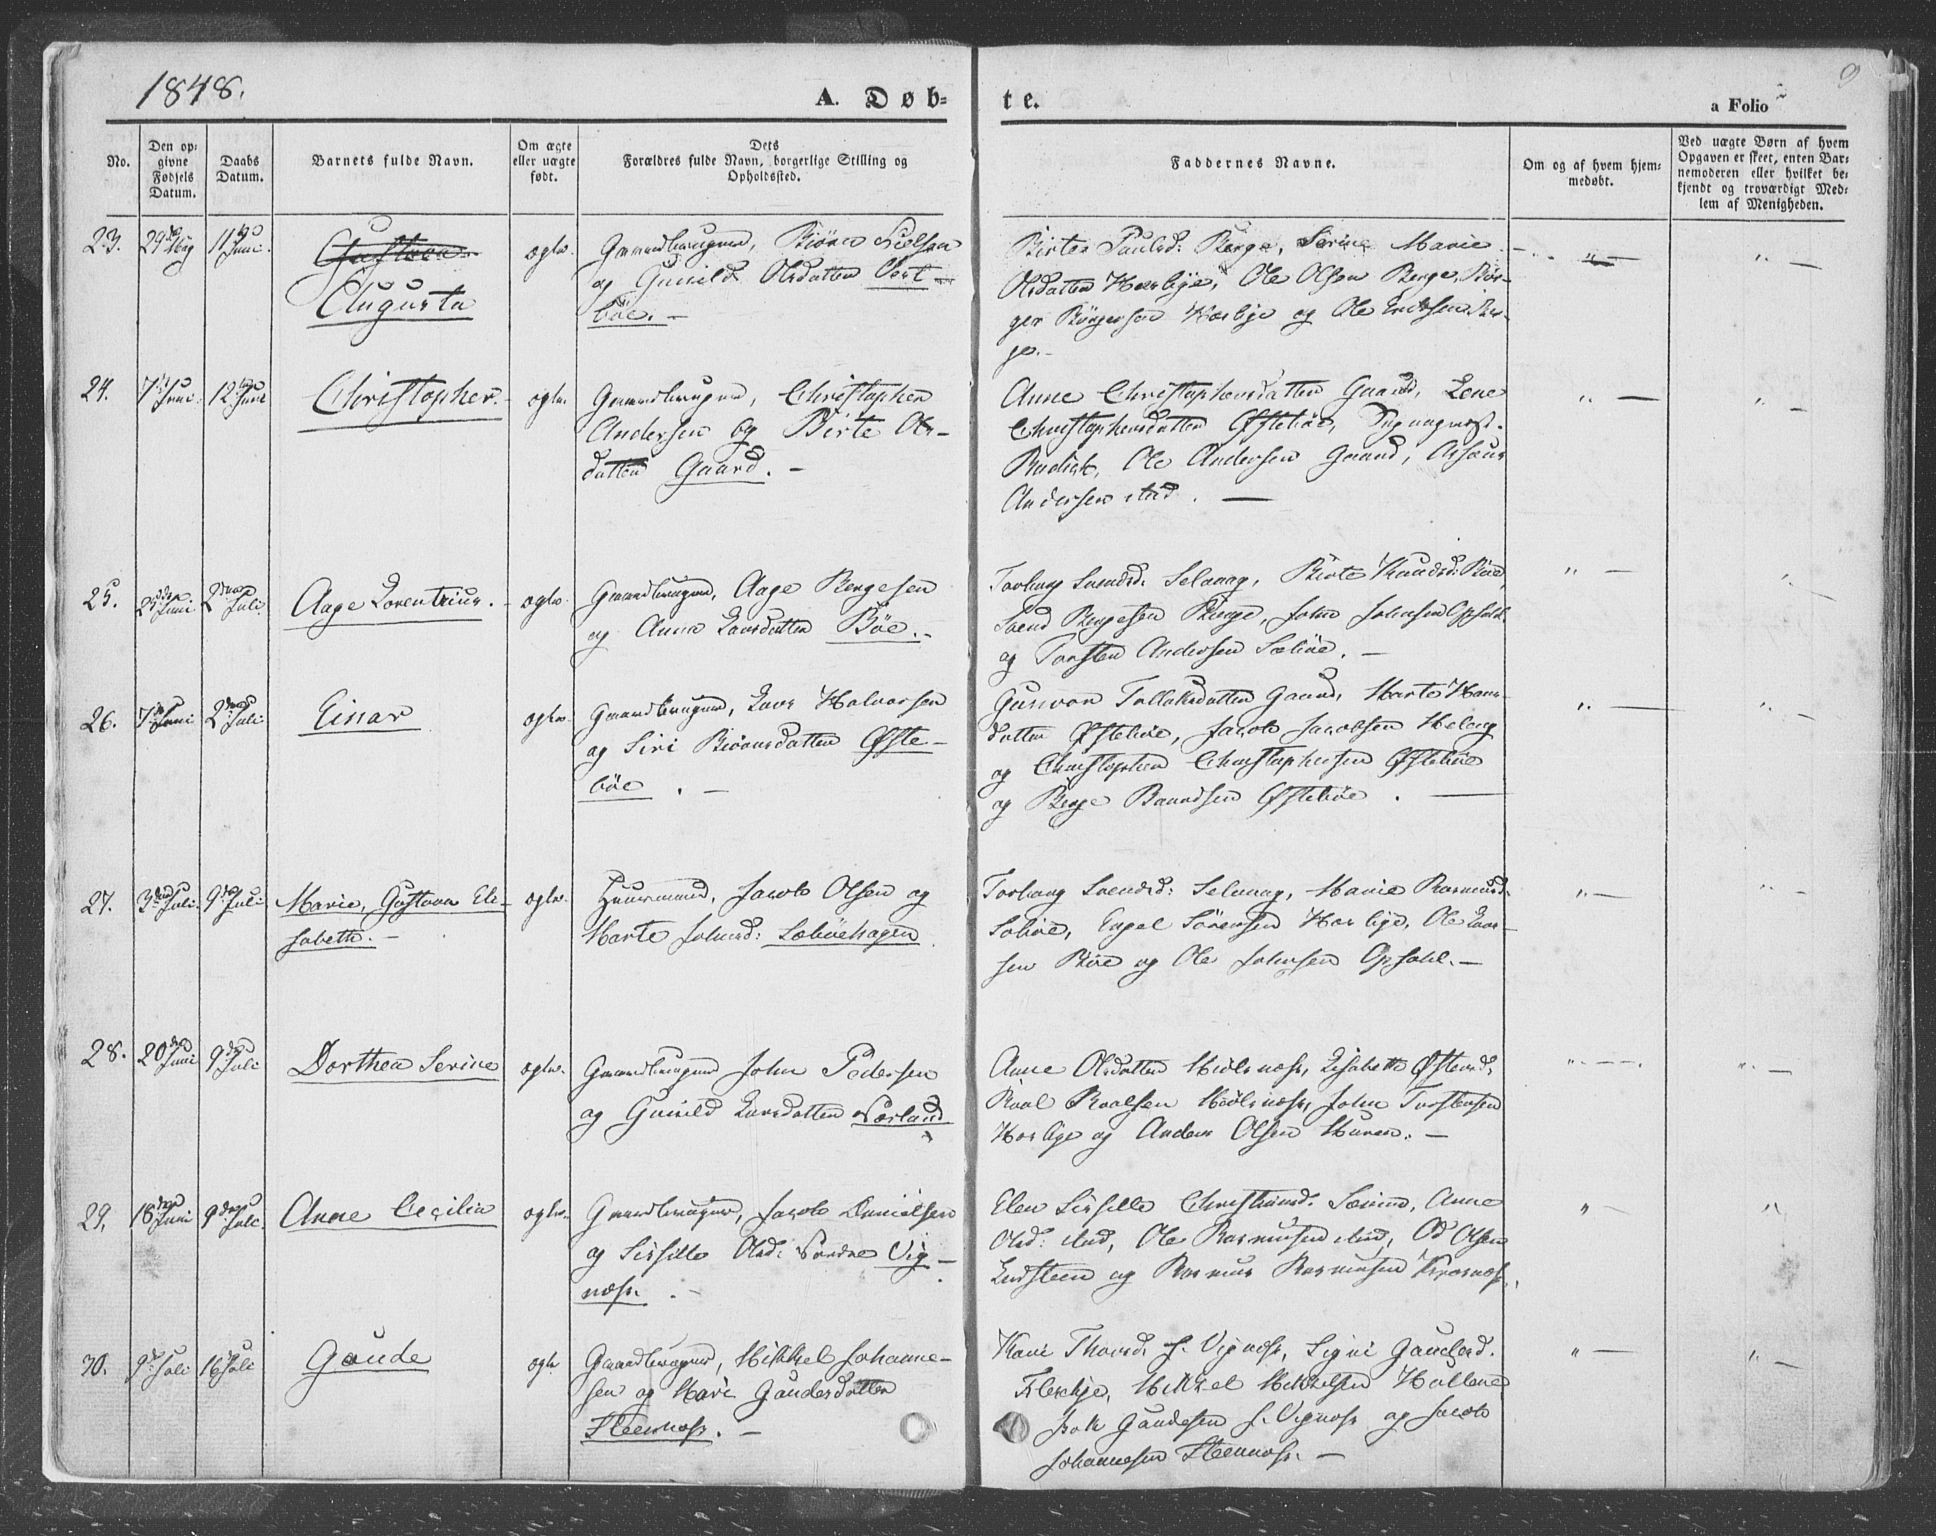 1848.
A. Døb-
te.
a Folio
9
No.
Den op-
givne
Fødsels
Datum.
Daabs
Datum.
Barnets fulde Navn.
Om ægte
eller uægte
født.
Dets
Forældres fulde Navn, borgerlige Stilling og
Opholdssted.
Faddernes Navne.
Om og af hvem hjem-
medøbt.
Ved uægte Børn af hvem
Opgaven er skeet, enten Bar-
nemoderen eller hvilket be-
kjendt og troværdigt Med-
lem af Menigheden.
23.
29 May
11 Juni
Augusta
ægte.
Gaardbruger, Biørn Nielsen
og Gunild Olsdatter
bøe.
Birte Paulsd: Berge, Serine Marie
Olsdatter Hæskje, Ole Olsen Berge, Bør-
ger Børgersen og Ole Eriksen Ber-
ge.
24.
7 Juni
12 Juni
Christopher.
ægte.
Gaardbruger, Christopher
Andersen og Birte Ols-
datter Gaard.
Anne Christophersdatter Gaard, Lene
Christophersdatter Øfstebøe,
Ole Andersen Gaard,
Andersen ibid.
25.
25 Juni
2 Juli
Aage Lorentzius.
ægte.
Gaardbruger, Aage Bergesen
og Anna Larsdatter Bøe.
Torborg Svendsd: Selvaag, Birte Knudsd: Bøe,
Svend Bergesen Berge, John Johnsen Opsahl
og Torsten Andersen Sæbøe.
26.
7 Juni
2 Juli
Einar
ægte.
Gaardbruger, Lars Halvorsen
og Siri Biørnsdatter Øfste-
bøe.
Gunvor Tollaksdatter Gaard, Marte Hans-
datter Øfstebøe, Jacob Jacobsen
og Christopher Christophersen Øfstebøe
og Berge Baardsen Øfstebøe.
27.
3 Juli
9 Juli
Marie, Gustava Eli-
sabeth.
ægte.
Huusmand, Jacob Olsen og
Marte Johnsd: Sæbøehagen
Torborg Svendsd: Selvaag, Marie Rasmusd:
Sæbøe, Engel Sørensen Ole Lar-
sen Bøe og Ole Johnsen Opsahl.
28.
20 Juni
9 Juli
Dorthea Serine
ægte.
Gaardbruger John Pedersen
og Gunild Larsdatter Nørland
Anne Olsdatter Miølsnæs, Lisabeth
Roal Roalsen Miølsnæs, John Torstensen
og Anders Olsen
29.
18 Juni
9 Juli
Anne Cecilia
ægte.
Gaardbruger, Jacob Danielsen
og Sissille Olsd: Nordre Vig-
næss.
Elen Sissille Christiansd: Anne
Olsd: ibid, Ole Rasmussen ibid, Od Olsen
og Rasmus Rasmussen
30.
9 Juli
16 Juli
Gaude
ægte
Gaardbruger, Mikkel Johanne-
sen og Kari Gaudesdatter
Steensnæs.
Kari Thorsd. S. Vignæs, Signi Gaudesd.
Fleskje, Mikkel Mikkelsen
Gaudesen S. Vignæs og Jacob
Johannesen Steensnæs.